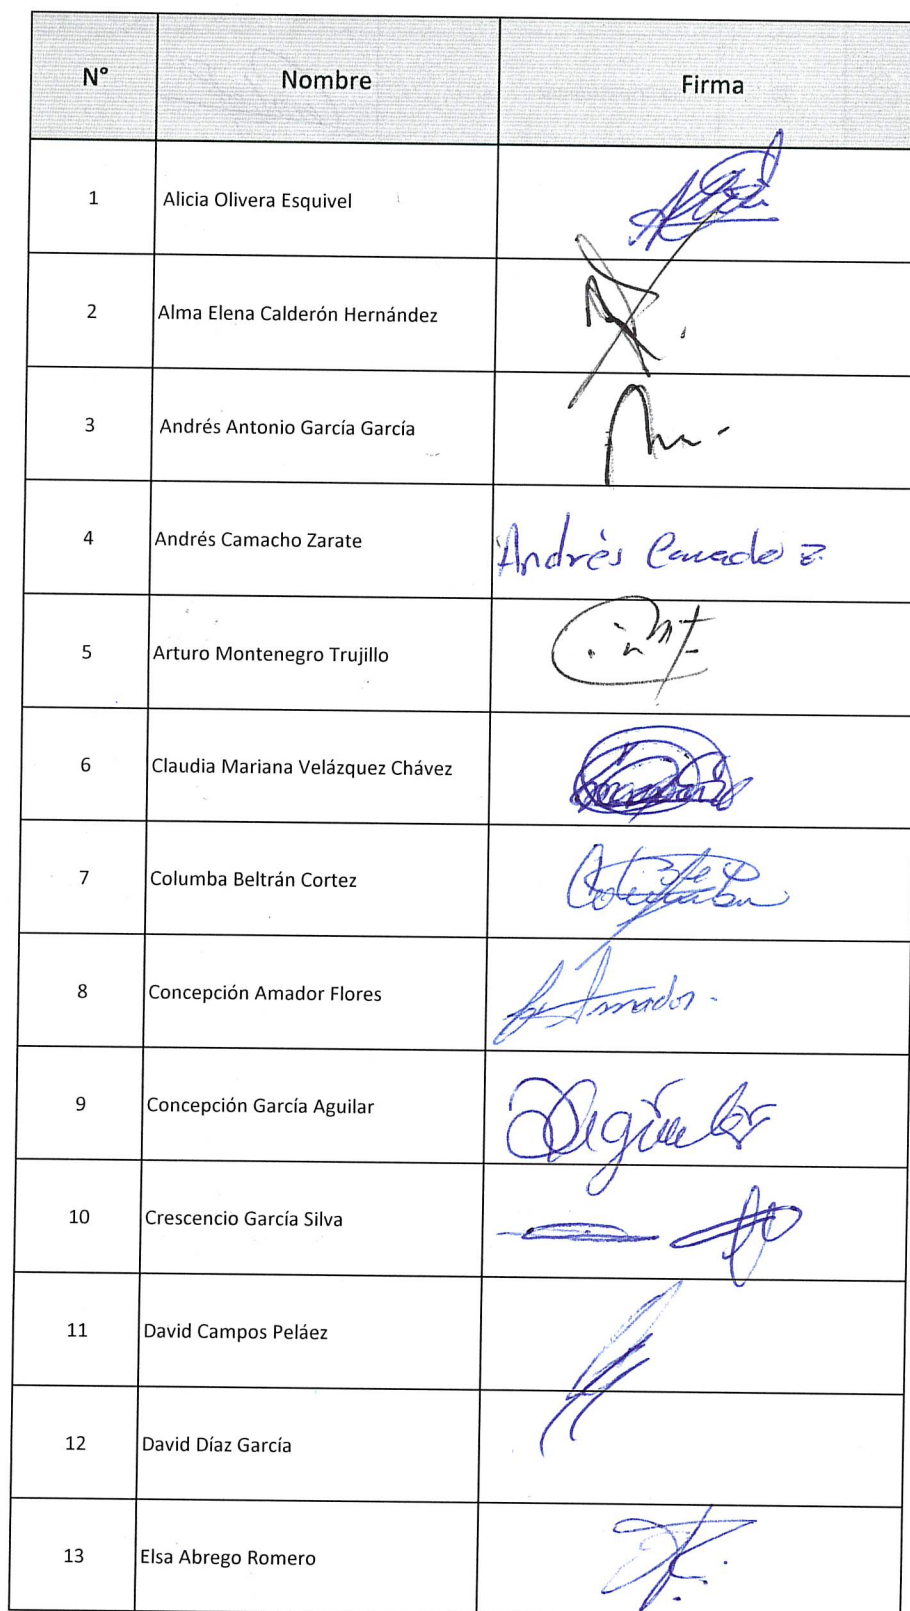 N° Nombre Firma
1 Alicia Olivera Esquivel
2 Alma Elena Calderón Hernández
3 Andrés Antonio García García
4 Andrés Camacho Zarate Andrés
5 Arturo Montenegro Trujillo
6 Claudia Mariana Velázquez Chávez
7 Columba Beltrán Cortez
8 Concepción Amador Flores Amador
9 Concepción García Aguilar
10 Crescencio García Silva
11 David Campos Peláez
12 David Díaz García
13 Elsa Abrego Romero